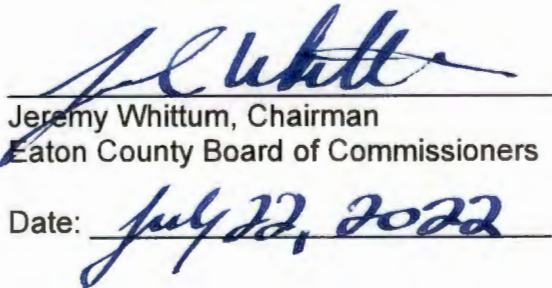 Jeremy Whittum, Chairman
Eaton County Board of Commissioners
Date: July 22, 2022